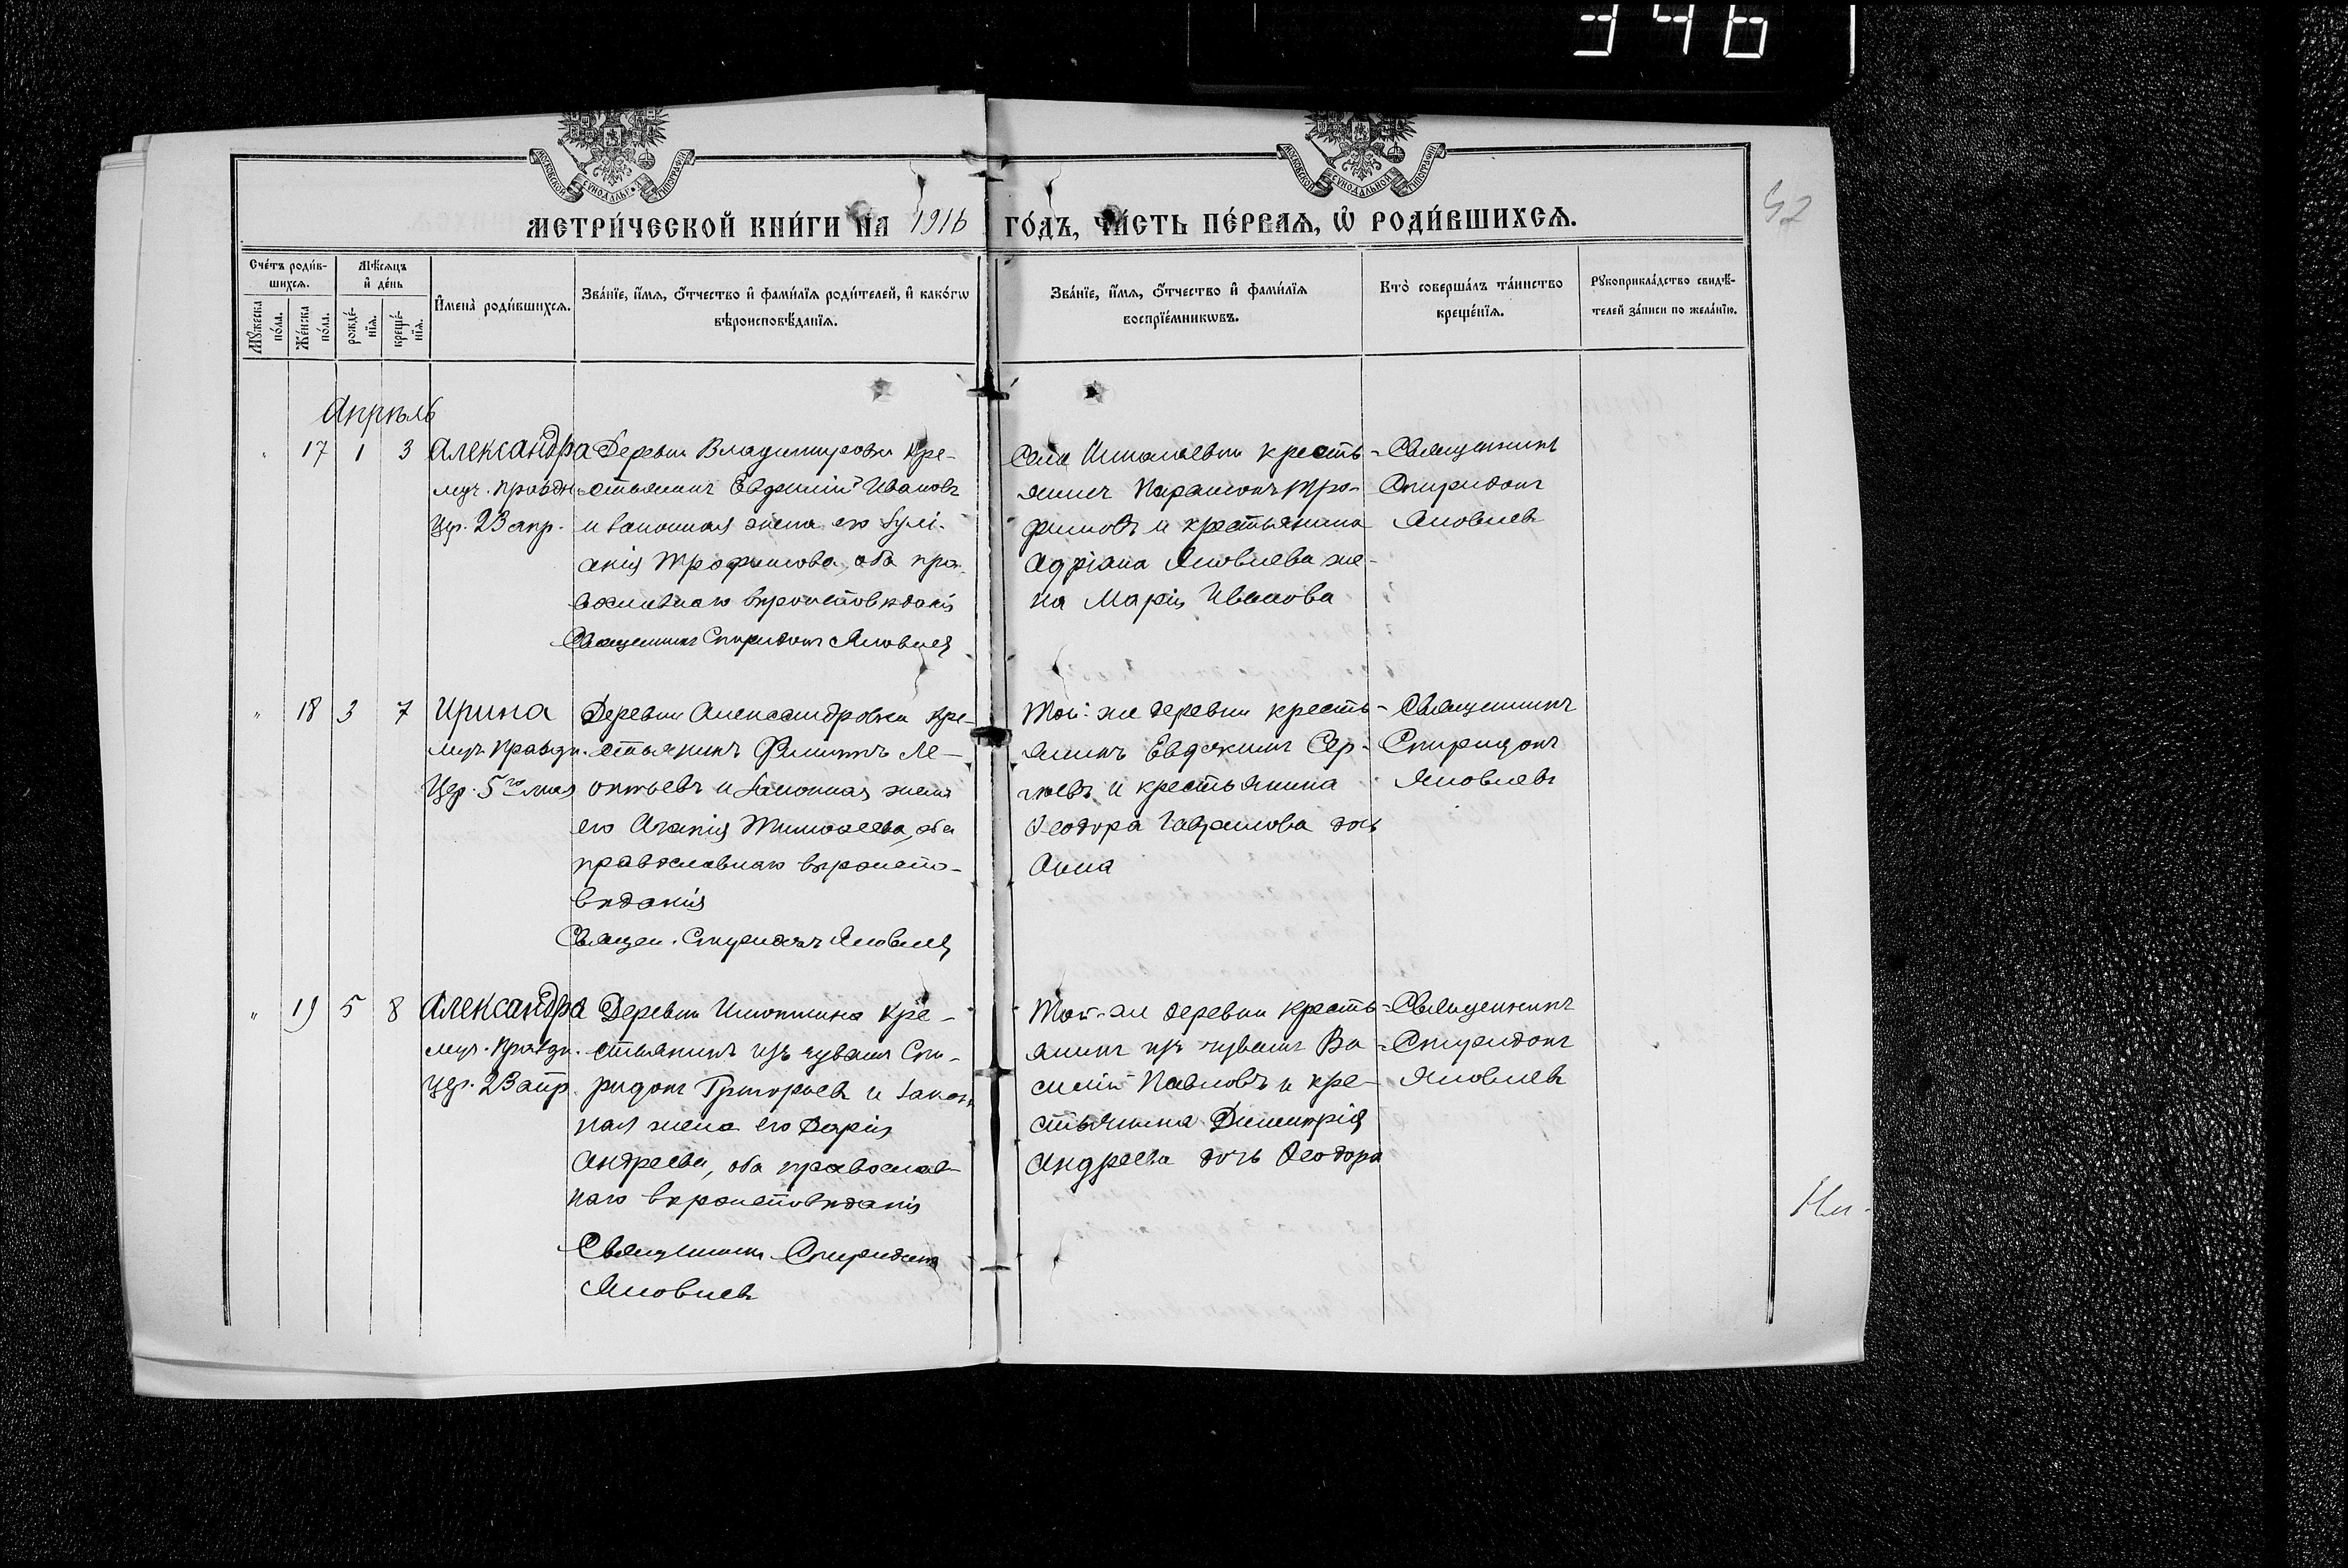 346
МОСКОВСКОЙ СѴНОДАЛЬНОЙ ТИПОГРАФІИ
МОСКОВСКОЙ СѴНОДАЛЬНОЙ ТИПОГРАФІИ
МЕТРИ́ЧЕСКОЙ КНИ́ГИ НА 1916 ГО́ДЪ, ЧА́СТЬ ПЕ́РВАЯ, Ѡ҆ РОДИ́ВШИХСѦ.
52
Сче́тъ роди́в-
шихсѧ.
Мꙋ́жеска
по́ла.
Же́нска
по́ла.
Мѣ́сѧцъ
и҆ де́нь
рожде́-
нїѧ.
креще́-
нїѧ.
И҆мена̀ роди́вшихсѧ.
Зва́нїе, и҆́мѧ, ѻ҆́тчество и҆ фами́лїѧ роди́телей, и҆ како́гѡ
вѣроисповѣ́данїѧ.
Зва́нїе, и҆́мѧ, ѻ҆́тчество и҆ фами́лїѧ
воспрїе́мникѡвъ.
Кто̀ соверша́лъ та́инство
креще́нїѧ.
Рꙋкоприкла́дство свидѣ́-
телей за́писи по жела́нїю.
Апрѣль
" 17 1 3 Александра
муч. праздн.
Цер. 23 апр.
Деревни Владимировки кре-
стьянинъ Евдокимъ Ивановъ
и законная жена его Іулі-
анія Трофимова, оба пра-
вославнаго вѣроисповѣданія
Священникъ Спиридонъ Яковлев
Села крестья-
янинъ Парамонъ Тро-
фимовъ и крестьянина
Адріана Яковлева же-
на Марія Иванова
Священникъ
Спиридонъ
Яковлевъ
" 18 3 7 Ирина
муч. праздн.
Цер. 5го мая
Деревни Александровки кре-
стьянинъ Филиппъ Ле-
онтьевъ и законная жена
его Агапія Тимофеева, оба
православнаго вѣроиспо-
вѣданія
Священ. Спиридонъ Яковлев
Той-же деревни кресть-
янинъ Евдокимъ Сер-
гѣевъ и крестьянина
Ѳеодора Гаврилова дочь
Анна
Священникъ
Спиридонъ
Яковлевъ
" 19 5 8 Александра
муч. праздн.
Цер. 23 апр.
Деревни кре-
стьянинъ изъ чувашъ Спи-
ридонъ Григорьевъ и закон
ная жена его Дарія
Андреева, оба православ
наго вѣроисповѣданія
Священникъ Спиридонъ
Яковлевъ
Той-же деревни кресть-
янинъ изъ чувашъ Ва-
силій Павловъ и кре-
стьянина Димитрія
Андреева дочь Ѳеодора
Священникъ
Спиридонъ
Яковлевъ